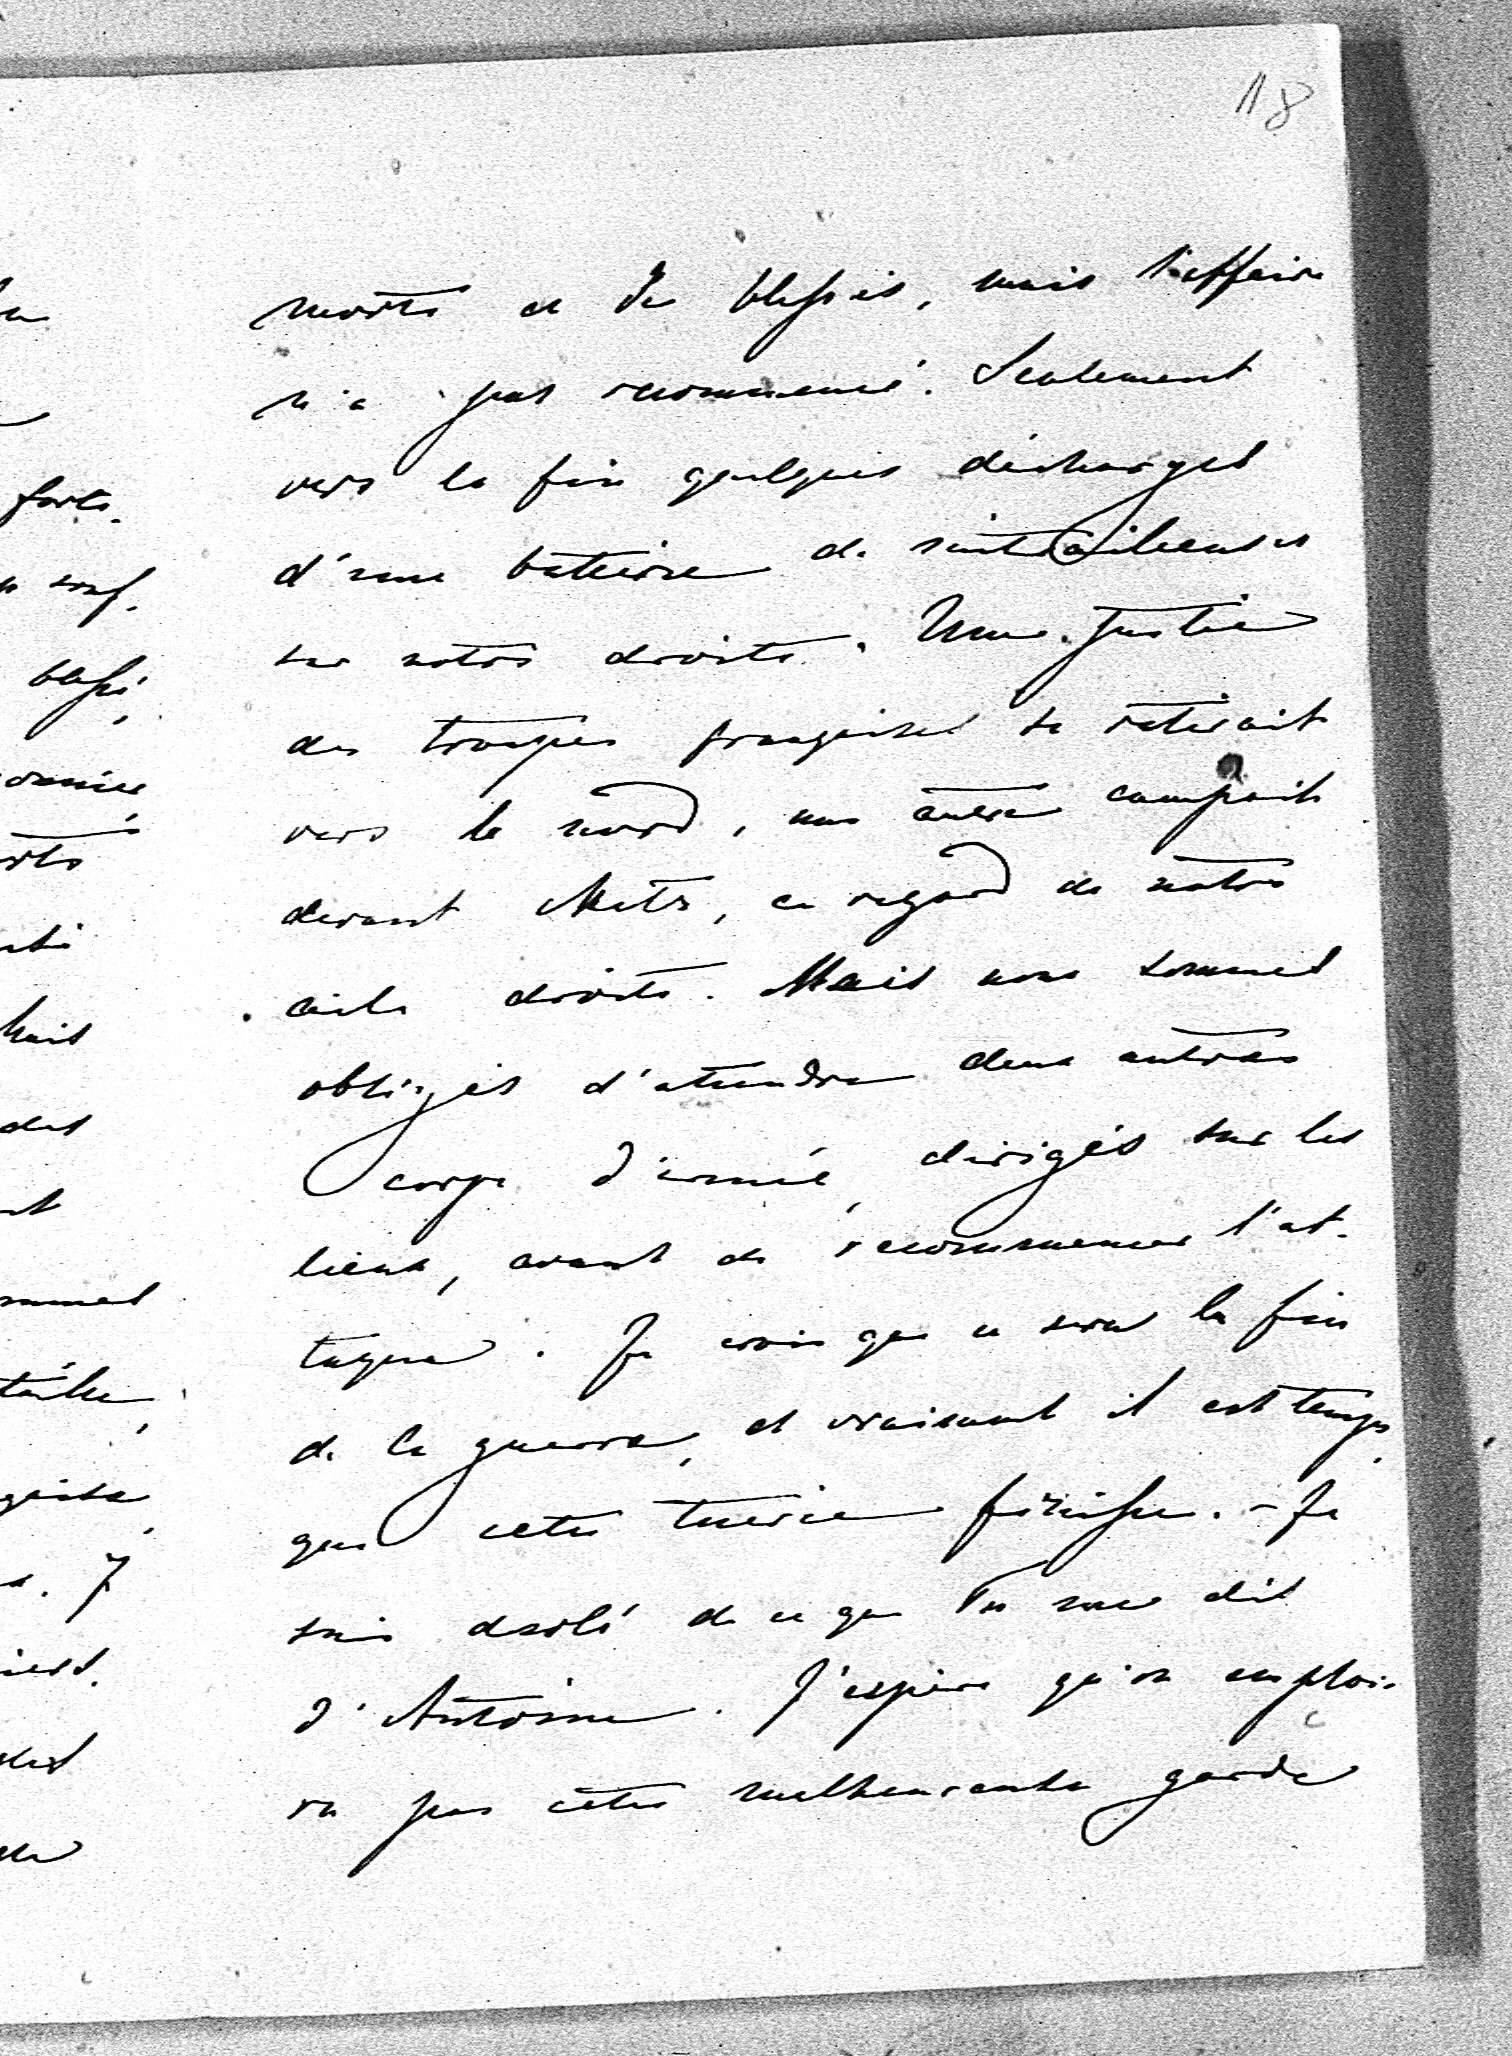 18
morts et de blessés, mais l'affaire
n'a pas recommencé. Seulement
vers la fin quelques décharges
d'une batterie de mitrailleuses
sur notre droite. Une partie
des troupes françaises se retirait
vers le nord, une autre campait
devant Metz, en regard de notre
aile droite. Mais nous sommes
obligés d'attendre deux autres
corps d'armée, dirigés sur les
lieux, avant de recommencer l'at-
taque. Je crois que ce sera la fin
de la guerre, et vraiment il est temps,
que cette tuerie finisse. - Je
suis désolé de ce que Tu me dis
d'Antoine. J'espère qu'on emploie-
ra pas cette malheureuse garde
forts.
blessé,
des